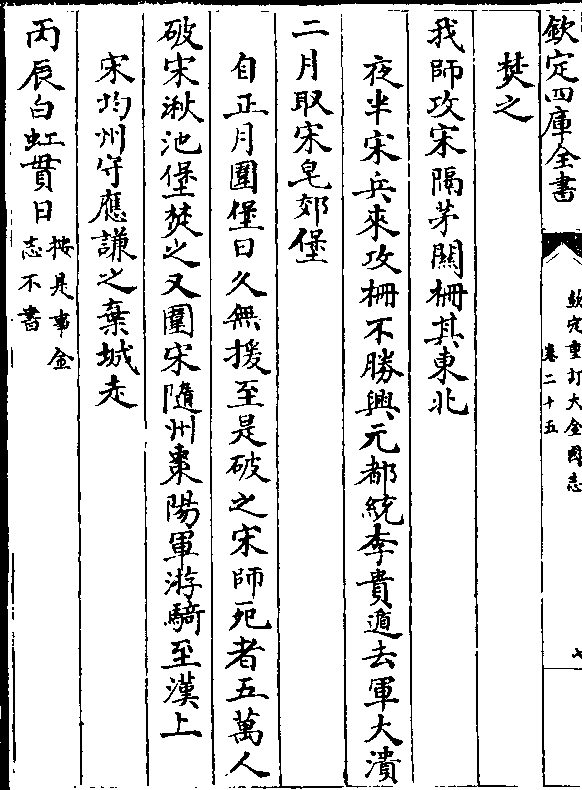 欽定四庫全書
欽定重訂大金國志
卷二十五
七
焚之
我師攻宋隔茅關柵其東北
夜半宋兵來攻柵不勝興元都統李貴遁去軍大潰
二月取宋皂郊堡
自正月圍堡日久無援至是破之宋師死者五萬人
破宋湫池堡焚之又圍宋隨州棗陽軍游騎至漢上
宋均州守應謙之棄城走
丙辰白虹貫日按是事金
志不書